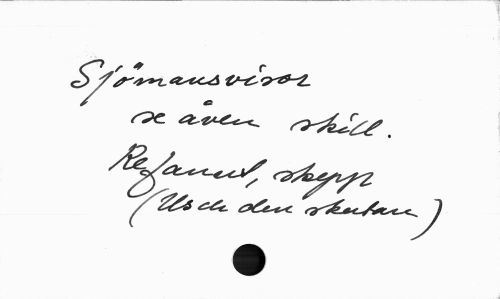 Sjömansvisor
se även skill.
Refanut, skepp
(Usch den skutan)